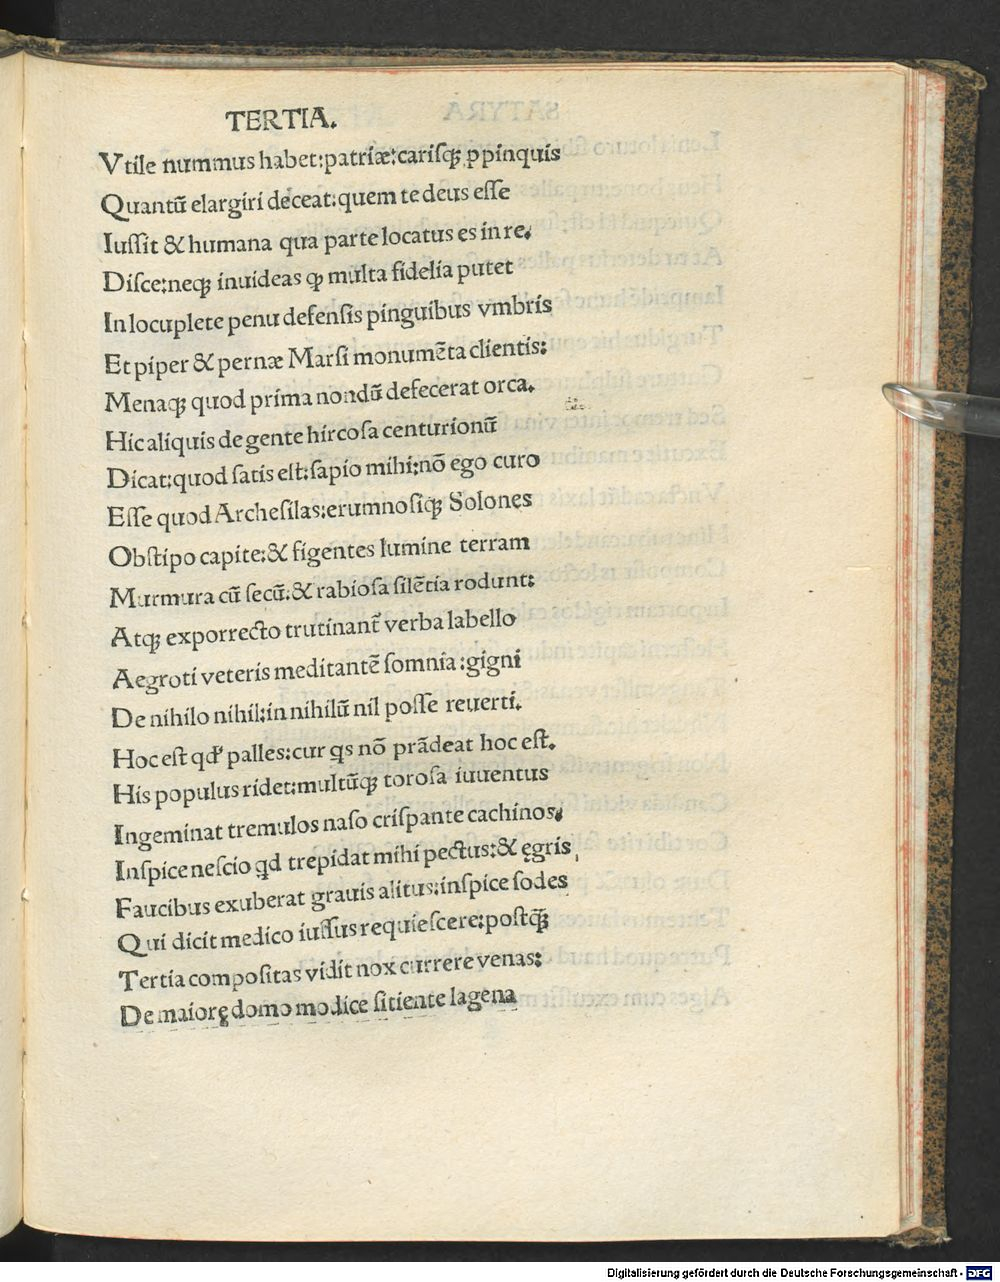 TERTIA.
Vtile nummus habet:patriæ:carisqꝫ ꝓpinquis
Quantū elargiri deceat:quem te deus esse
Iussit & humana qua parte locatus es in re.
Disce:neqꝫ inuideas ꝙ multa fidelia putet
In locuplete penu defensis pinguibus vmbris
Et piper & pernæ Marsi monumēta clientis:
Menaqꝫ quod prima nondū defecerat orca.
Hic aliquis de gente hircosa centurionū
Dicat:quod satis est:sapio mihi:nō ego curo
Esse quod Archesilas:erumnosiqꝫ Solones
Obstipo capite:& figentes lumine terram
Murmura cū secū:& rabiosa silētia rodunt:
Atqꝫ exporrecto trutinant᷑ verba labello
Aegroti veteris meditantē somnia:gigni
De nihilo nihil:in nihilū nil posse reuerti.
Hoc est qđ palles:cur qs nō prādeat hoc est.
His populus ridet:multūqꝫ torosa iuuentus
Ingeminat tremulos naso crispante cachinos.
Inspice nescio qd trepidat mihi pectus:& ęgris
Faucibus exuberat grauis alitus:inspice sodes
Qui dicit medico iussus requiescere:postqꝫ̄
Tertia compositas vidit nox currere venas:
De maiorę domo modice sitiente lagena
Digitalisierung gefördert durch die Deutsche Forschungsgemeinschaft - DFG